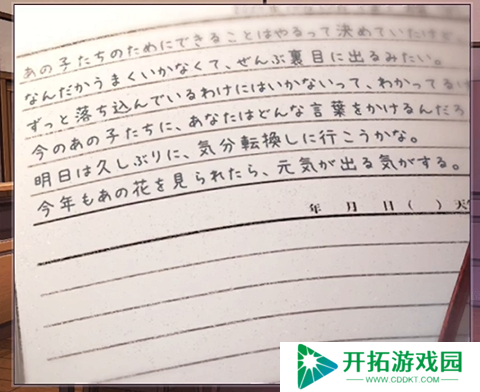 あの子たちのためにできることはやるって決めていたけど
なんだかうまくいかなくて、ぜんぶ裏目に出るみたい。
ずっと落ち込んでいるわけにはいかないって、わかってる
今のあの子たちに、あなたはどんな言葉をかけるんだろ
明日は久しぶりに、気分転換しに行こうかな。
今年もあの花を見られたら、元気が出る気がする。
年 月 日( ) 天
开拓游戏园
WWW.CDDKT.COM